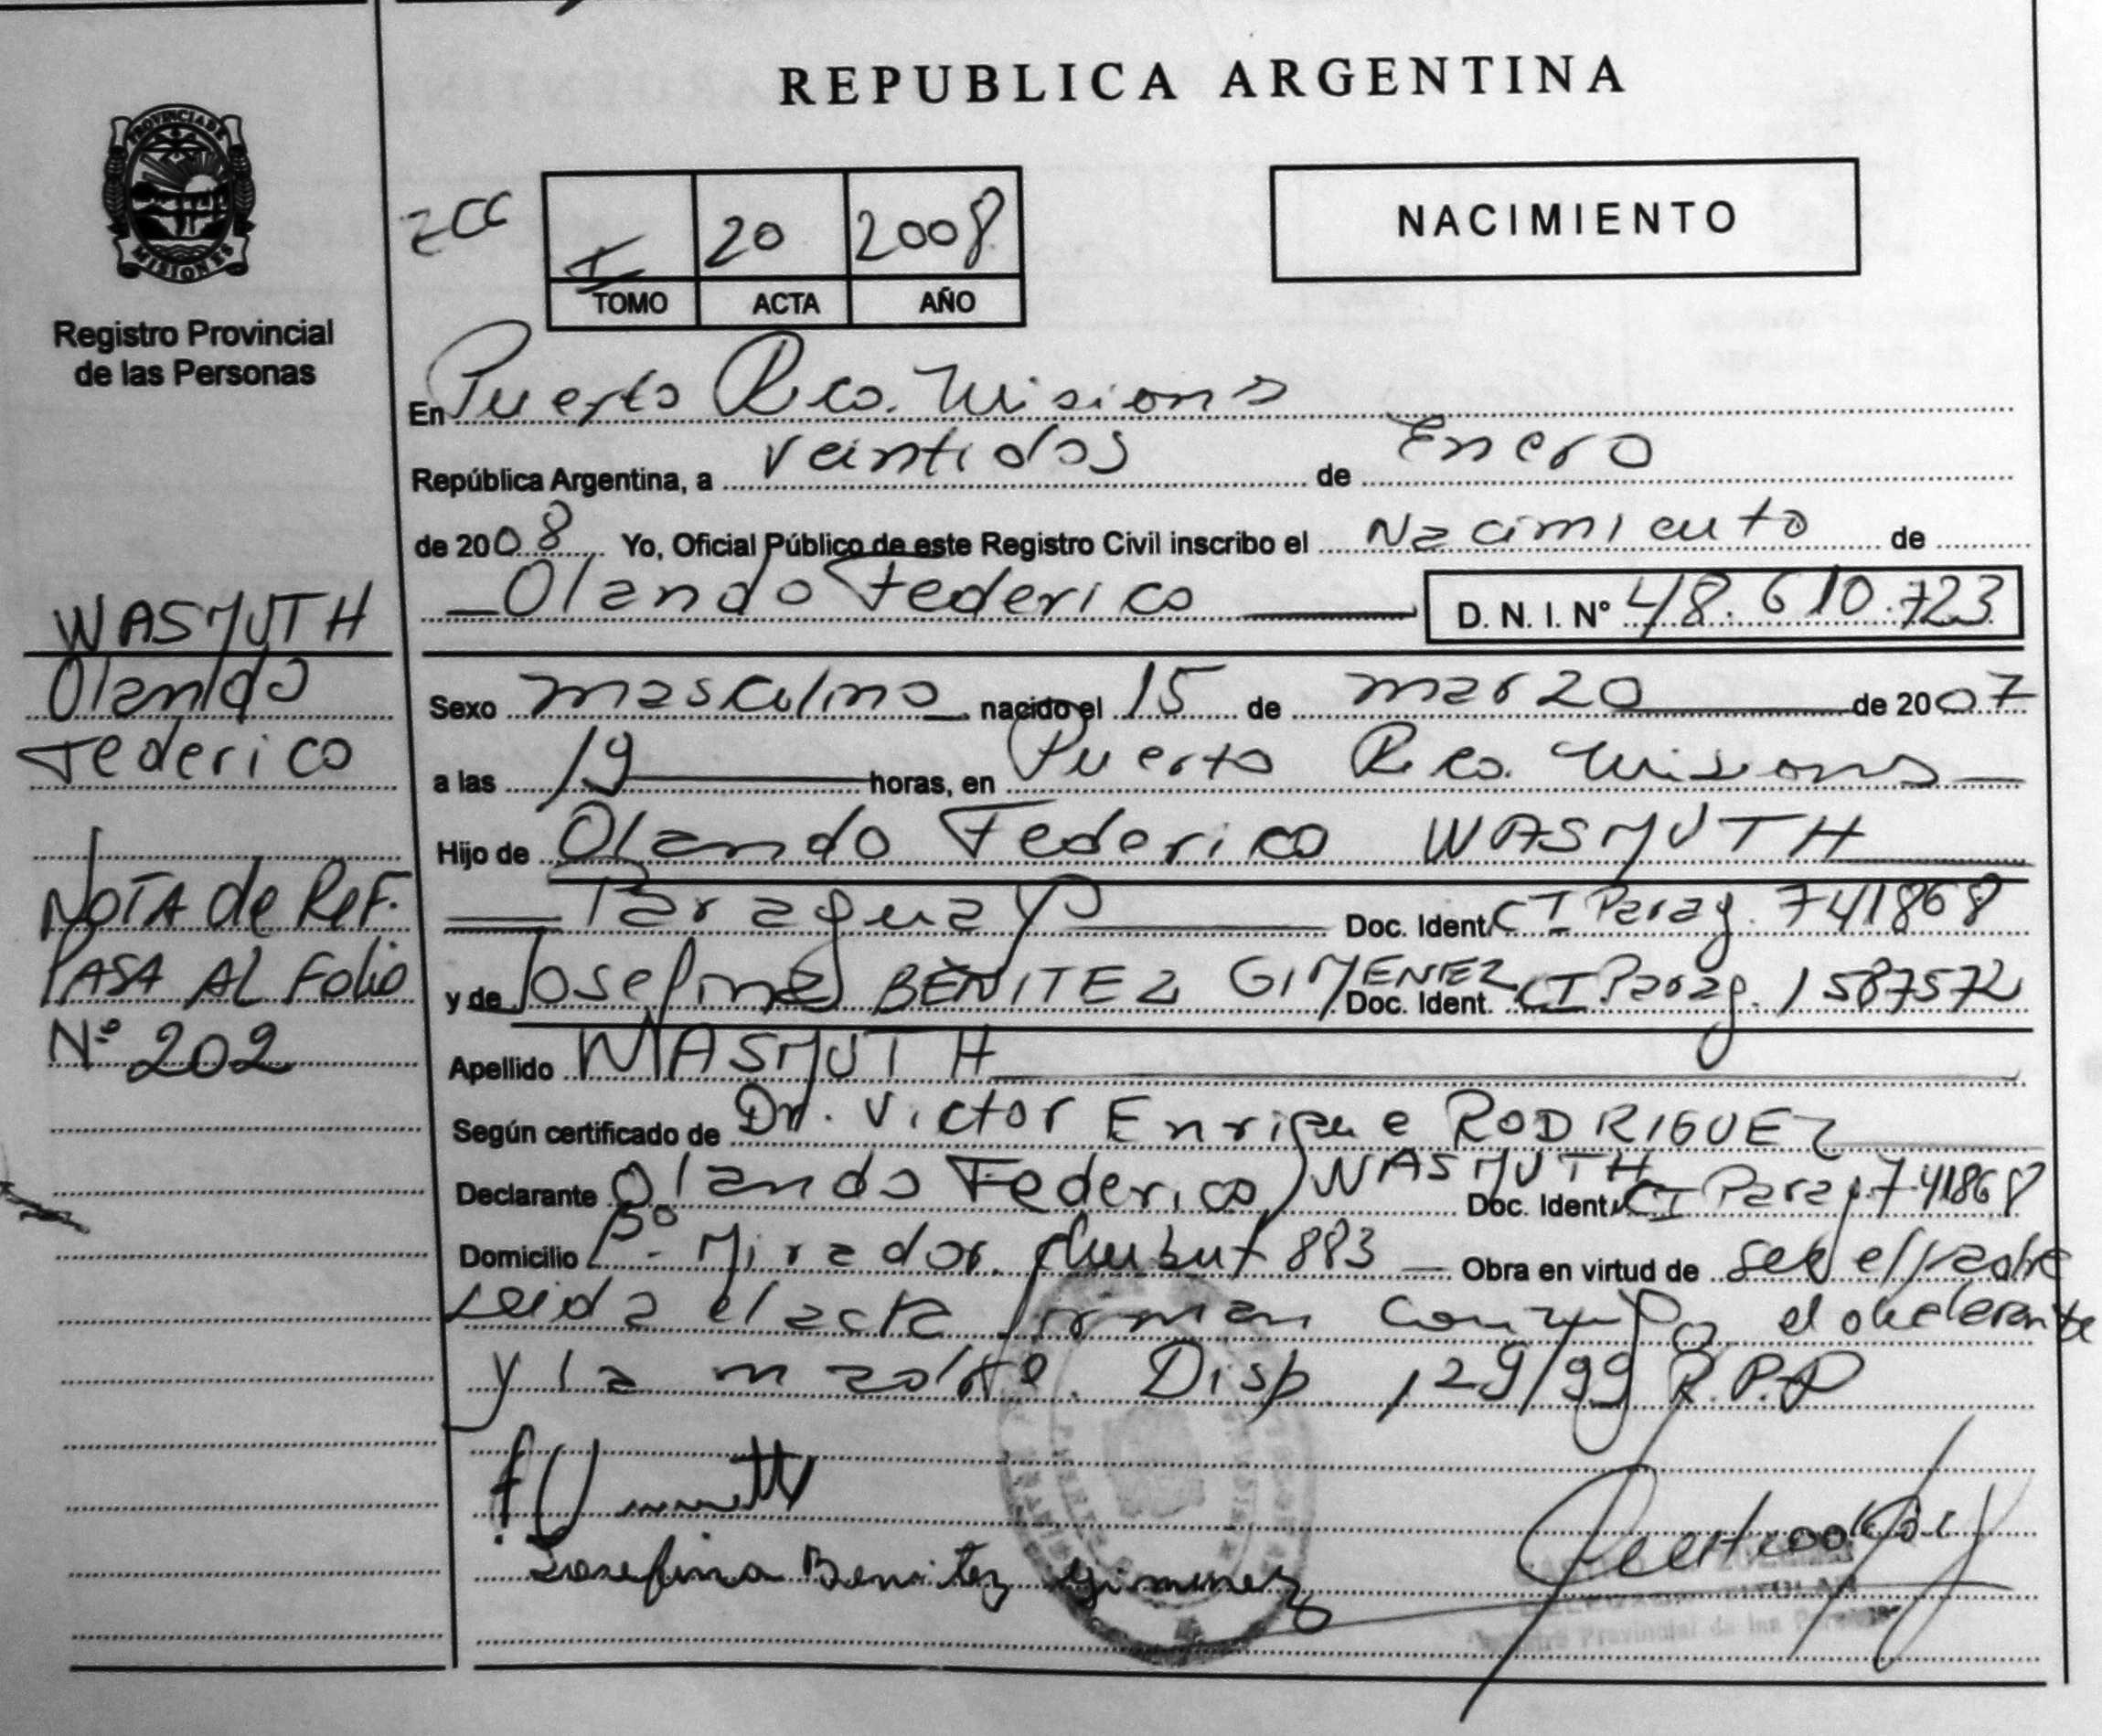 REPUBLICA ARGENTINA
PROVINCIA DE
MISIONES
Registro Provincial
de las Personas
I 20 2008
TOMO ACTA AÑO
NACIMIENTO
En Puerto Rico. Misiones
República Argentina, a veintidos de Enero
de 2008 Yo, Oficial Público de este Registro Civil inscribo el Nacimiento de
Olando Federico D. N. I. Nº 48.610.723
WASMUTH
Olando
Federico
Sexo masculino nacido el 15 de marzo de 2007
a las 19 horas, en Puerto Rico. Misiones
Hijo de Olando Federico WASMUTH
Paraguayo Doc. Ident. CI Parag. 741868
y de Josefina BENITEZ GIMENEZ Doc. Ident. CI Parag. 1587572
NOTA de REF.
PASA AL Folio
Nº 202
Apellido WASMUTH
Según certificado de Dr. Victor Enrique RODRIGUEZ
Declarante Olando Federico WASMUTH Doc. Ident. CI Parag. 741868
Domicilio Bº. Mirador. Chubut 883 Obra en virtud de ser el padre
Leida el acta firman conmigo el declarante
y la madre. Disp 129/99 R.P.P
Josefina Benitez Gimenez
Registro Provincial de las Personas